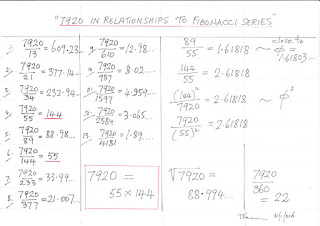 "7920 IN RELATIONSHIPS TO FIBONACCI SERIES"
1. 7920/13 = 609.23...
2. 7920/21 = 377.14...
3. 7920/34 = 232.94...
4. 7920/55 = 144
5. 7920/89 = 88.98...
6. 7920/144 = 55
7. 7920/233 = 33.99...
8. 7920/377 = 21.007...
9. 7920/610 = 12.98...
10. 7920/987 = 8.02....
11. 7920/1597 = 4.959...
12. 7920/2584 = 3.065...
13. 7920/4181 = 1.89....
7920 =
55 × 144
89/55 = 1.61818 ~ close to ϕ = 1.61803...
144/55 = 2.61818
(144)²/7920 = 2.61818 ~ ϕ²
7920/(55)² = 2.61818
√7920 =
88.994...
7920/360 = 22